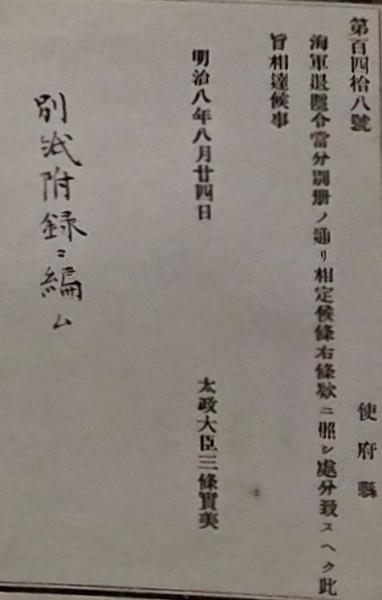 第百四拾八號
使府縣
海軍退隱令當分別册ノ通リ相定候條右條欵ニ照シ處分致スヘク此
旨相達候事
明治八年八月廿四日
太政大臣三條實美
別紙附録ニ編ム